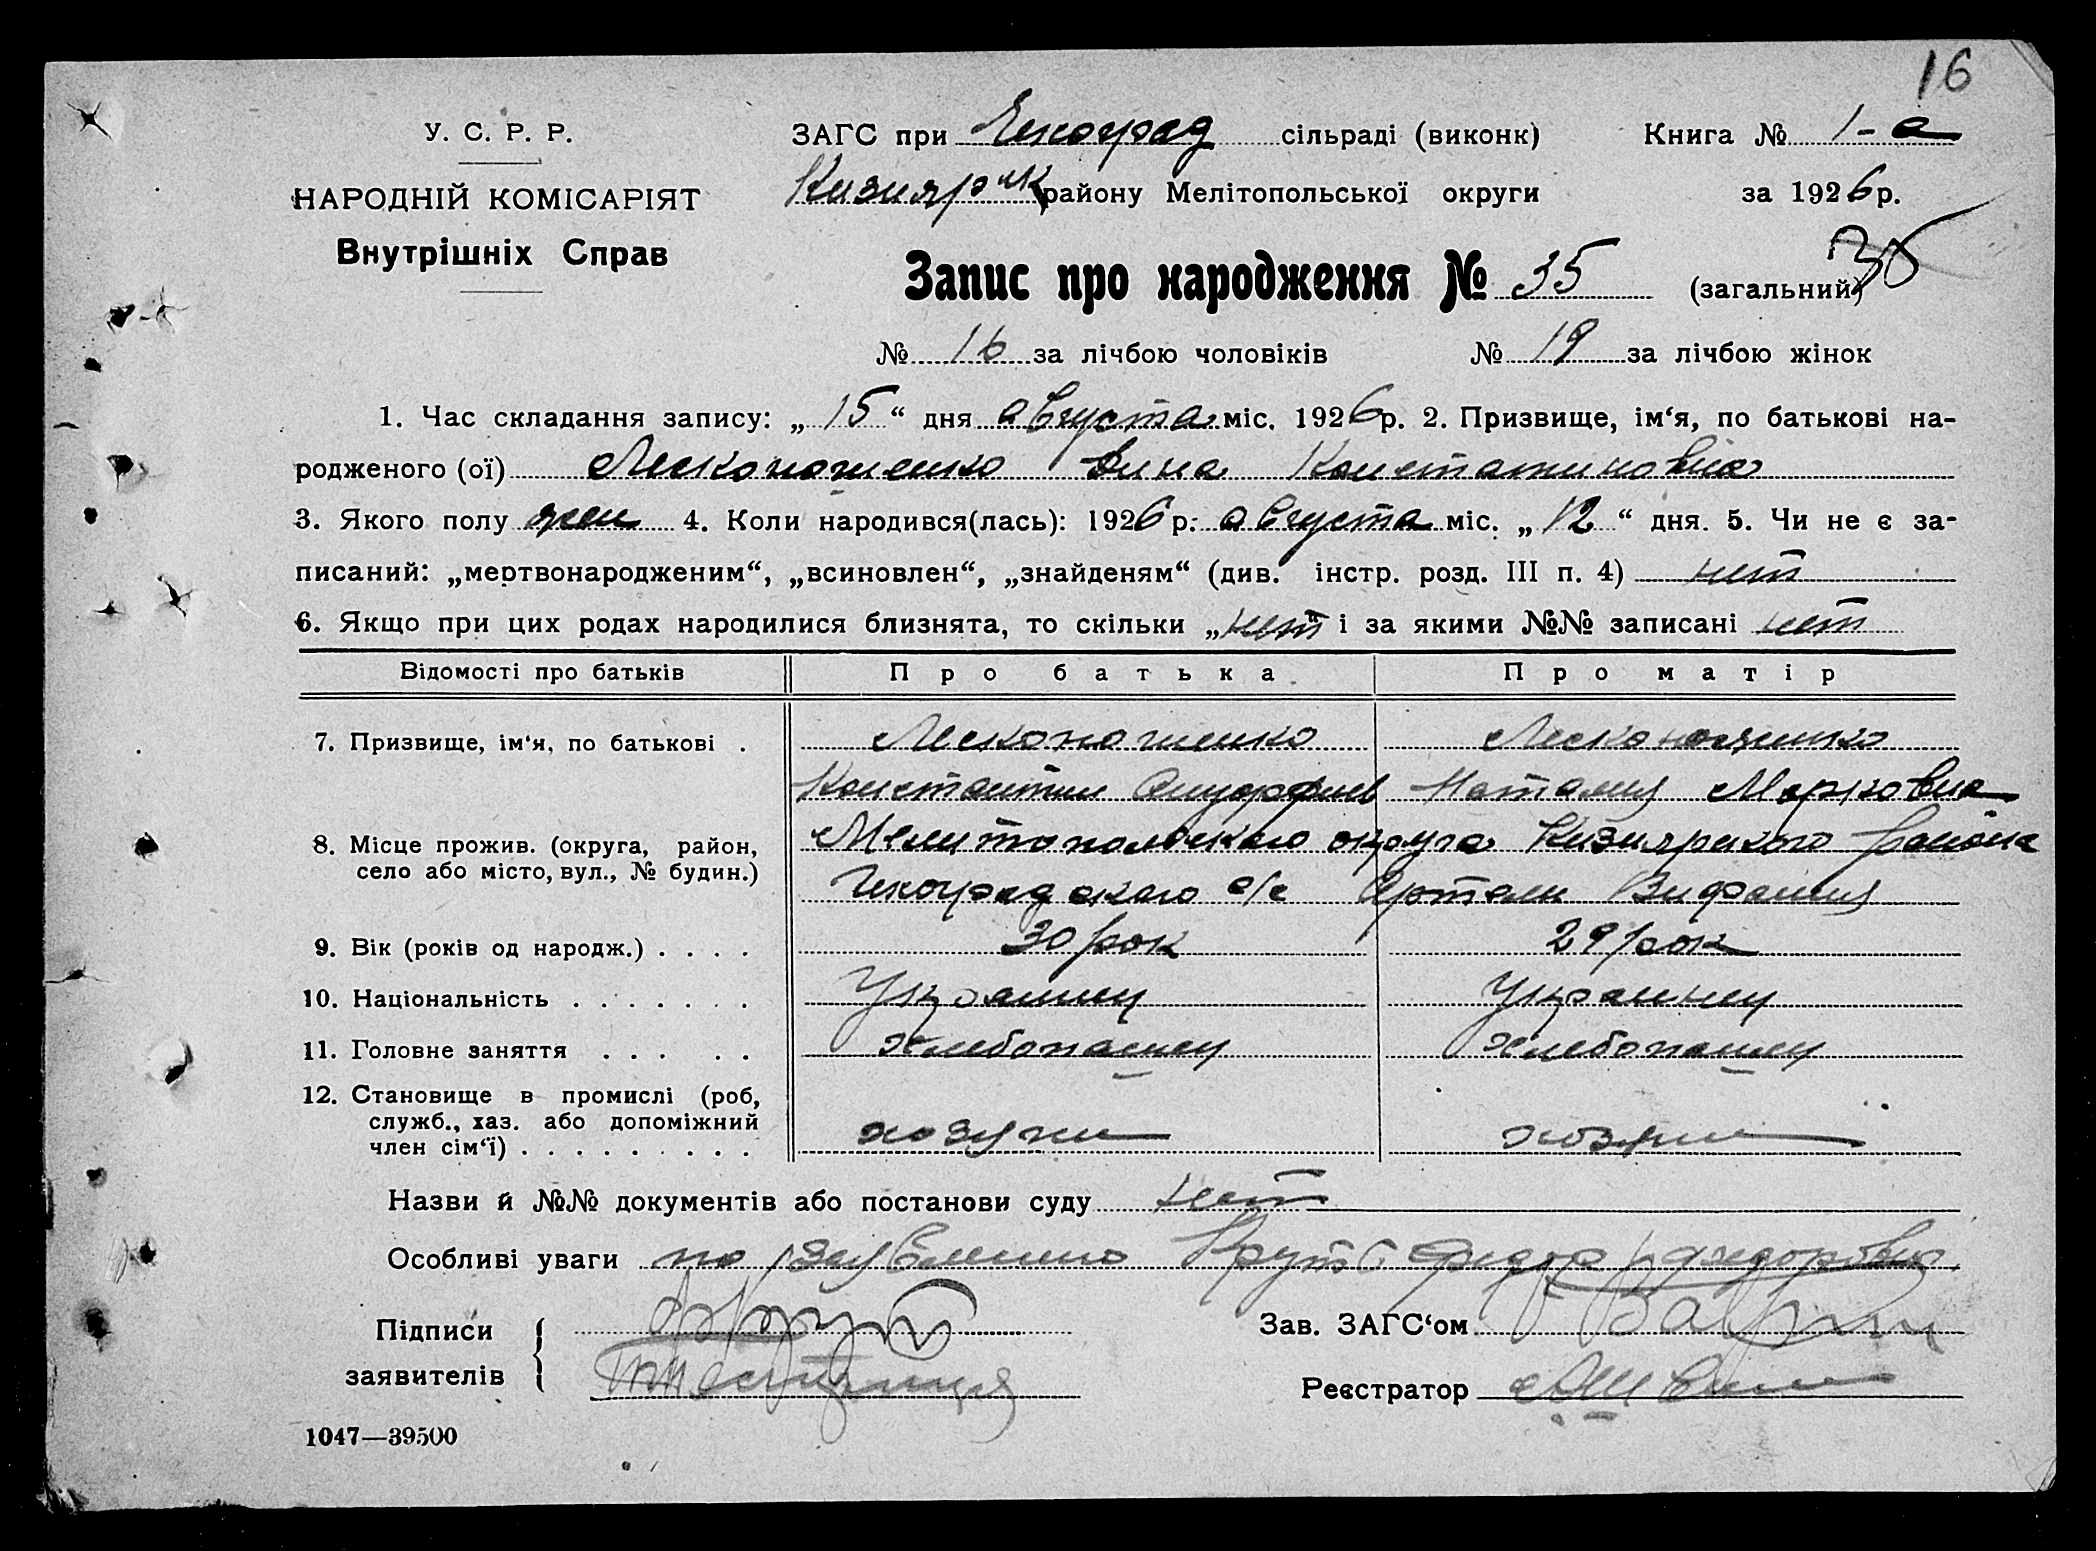 16
У. С. Р. Р.
НАРОДНІЙ КОМІСАРІЯТ
Внутрішніх Справ
ЗАГС при Чкоград сільраді (виконк)
Кизиярск району Мелітопольської округи
Книга № 1-а
за 1926 р.
Запис про народження № 35 (загальний) 35
№ 16 за лічбою чоловіків № 19 за лічбою жінок
1. Час складання запису: „ 15 “ дня августа міс. 1926 р. 2. Призвище, ім‘я, по батькові на-
родженого (ої) Лисконоженко Константиновна
3. Якого полу жен 4. Коли народився(лась): 1926 р. августа міс. „ 12 “ дня. 5. Чи не є за-
писаний: „мертвонародженим“, „всиновлен“, „знайденям“ (див. інстр. розд. III п. 4) нет
6. Якщо при цих родах народилися близнята, то скільки „нет“ і за якими №№ записані нет
Відомості про батьків Про батька Про матір
7. Призвище, ім‘я, по батькові . Лисконоженко Лисконоженко
Константин Наталия Марковна
8. Місце прожив. (округа, район, село або місто, вул., № будин.) Мелитопольского округа Кизиярского района
с/с Артель
9. Вік (років од народж.) . . . . 30 рок 29 рок
10. Національність . . . . . . . Украинец Украинец
11. Головне заняття . . . . . хлебопашец хлебопашец
12. Становище в промислі (роб, служб., хаз. або допоміжний член сім‘ї) . . . . . . . . . хозяин хозяин
Назви й №№ документів або постанови суду нет
Особливі уваги по заявлению
Підписи заявителів
Зав. ЗАГС‘ом
Реєстратор
1047—39500